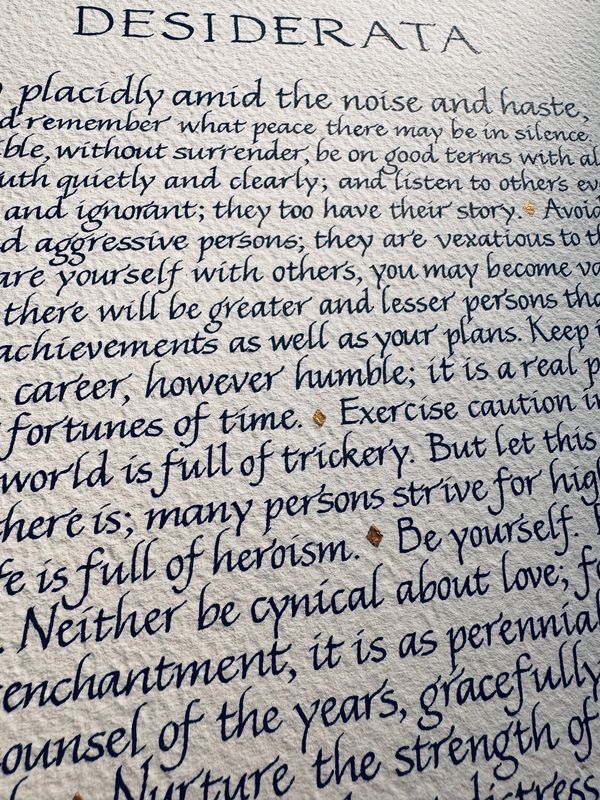 DESIDERATA
placidly amid the noise and haste,
remember what peace there may be in silence.
without surrender, be on good terms with
quietly and clearly; and listen to others
and ignorant; they too have their story. Avoid
aggressive persons; they are vexatious to
yourself with others, you may become
there will be greater and lesser persons
achievements as well as your plans. Keep
career, however humble; it is a real
fortunes of time. Exercise caution
world is full of trickery. But let this
there is; many persons strive for
is full of heroism. Be yourself.
Neither be cynical about love;
enchantment, it is as perennial
counsel of the years, gracefully
Nurture the strength of
distress